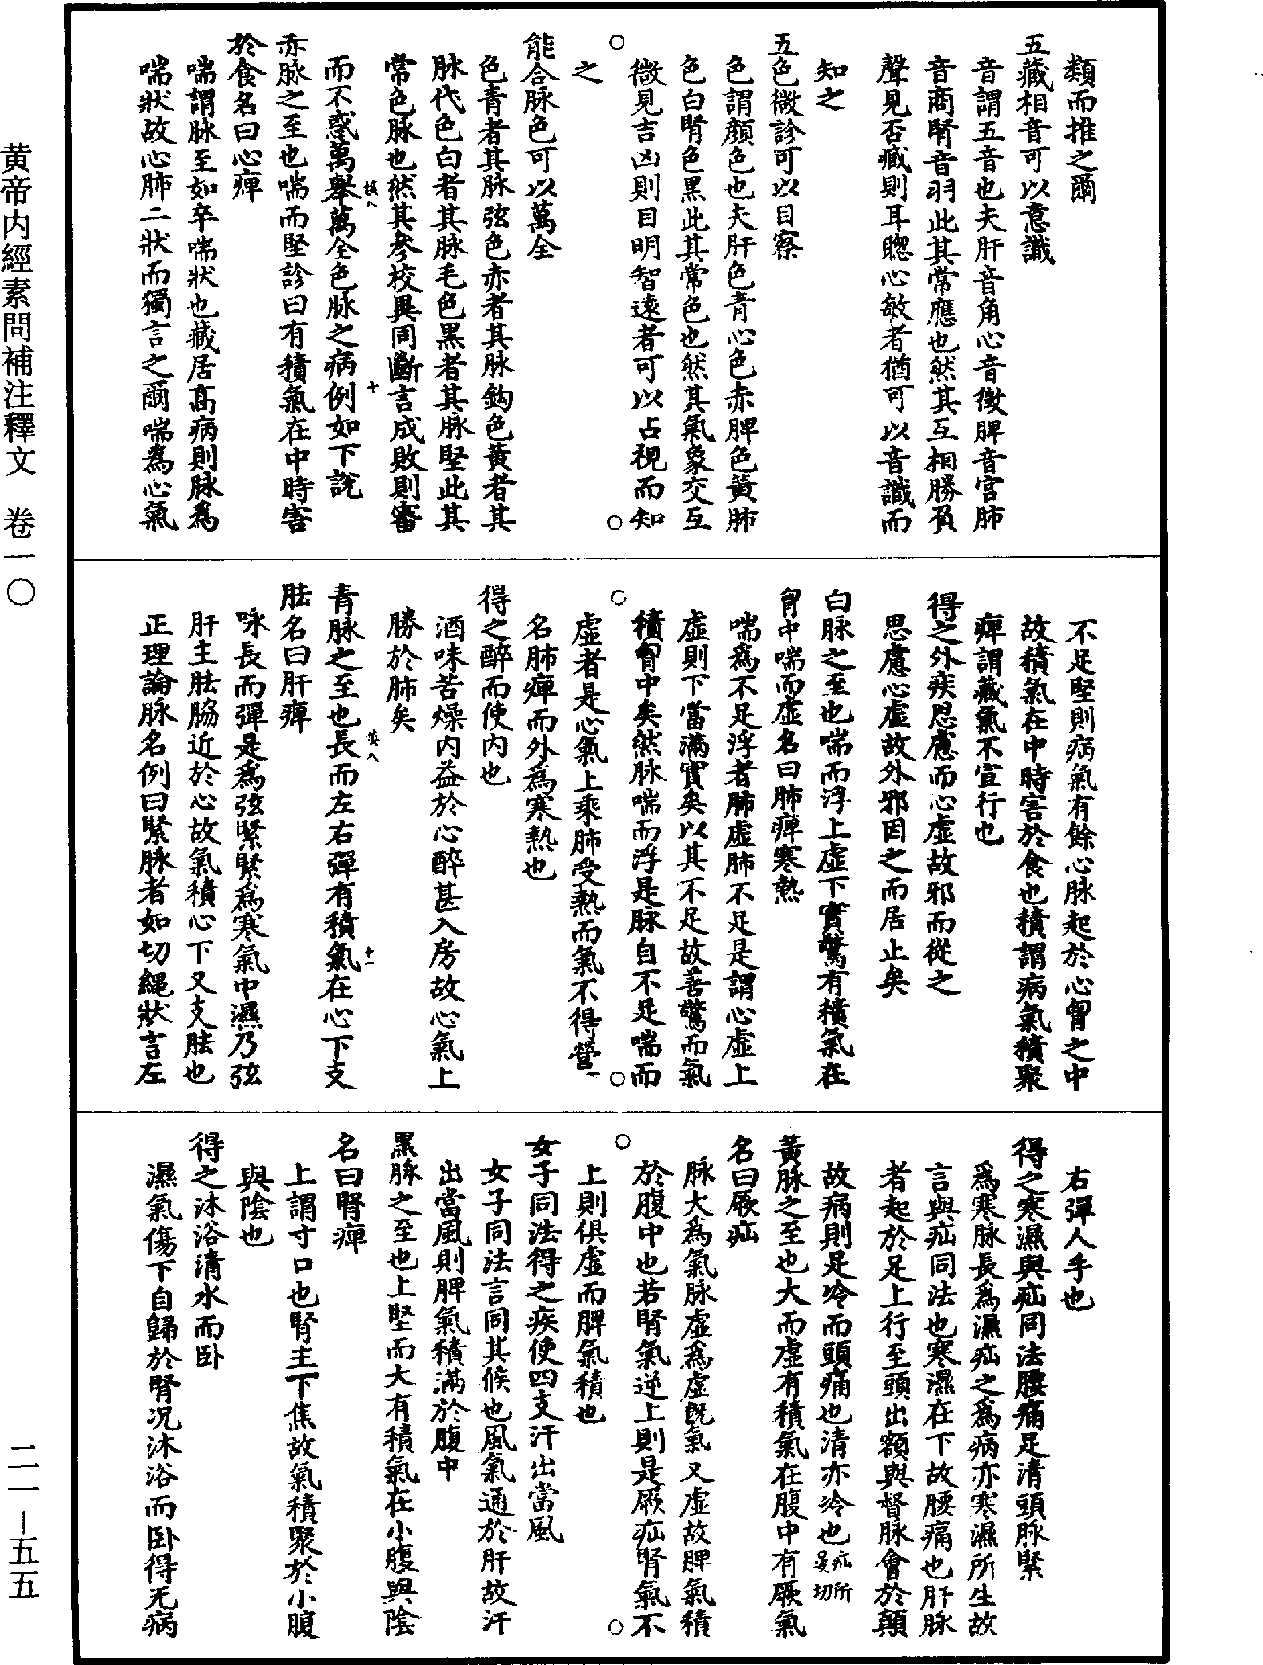 類而推之爾
五藏相音可以意識
音謂五音也夫肝音角心音徵脾音宮肺
音商腎音羽此其常應也然其互相勝負
聲見否臧則耳聰心敏者猶可以音識而
知之
五色微診可以目察
色謂顏色也夫肝色青心色赤脾色黃肺
色白腎色黑此其常色也然其氣象交互
微見吉凶則目明智遠者可以占視而知
之
能合脉色可以萬全
色青者其脉弦色赤者其脉鈎色黃者其
脉代色白者其脉毛色黑者其脉堅此其
常色脉也然其參校異同斷言成敗則審
而不惑萬舉萬全色脉之病例如下說
赤脉之至也喘而堅診曰有積氣在中時害
於食名曰心痺
喘謂脉至如卒喘狀也藏居高病則脉為
喘狀故心肺二狀而獨言之爾喘為心氣
不足堅則病氣有餘心脉起於心胷之中
故積氣在中時害於食也積謂病氣積聚
痺謂藏氣不宣行也
得之外疾思慮而心虛故邪而從之
思慮心虛故外邪因之而居止矣
白脉之至也喘而浮上虛下實驚有積氣在
胷中喘而虛名曰肺痺寒熱
喘為不足浮者肺虛肺不足是謂心虛上
虛則下當滿實矣以其不足故善驚而氣
積胷中矣然脉喘而浮是脉自不足喘而
虛者是心氣上乘肺受熱而氣不得營
名肺痺而外為寒熱也
得之醉而使內也
酒味苦燥內益於心醉甚入房故心氣上
勝於肺矣
青脉之至也長而左右彈有積氣在心下支
胠名曰肝痺
咏長而彈是為弦緊緊為寒氣中濕乃弦
肝主胠脇近於心故氣積心下又支胠也
正理論脉名例曰緊脉者如切繩狀言左
右彈人手也
得之寒濕與疝同法腰痛足清頭脉緊
為寒脉長為濕疝之為病亦寒濕所生故
言與疝同法也寒濕在下故腰痛也肝脉
者起於足上行至頭出額與督脉會於顛
故病則足冷而頭痛也清亦冷也疝所晏切
黃脉之至也大而虛有積氣在腹中有厥氣
名曰厥疝
脉大為氣脉虛為虛旣氣又虛故脾氣積
於腹中也若腎氣逆上則是厥疝腎氣不
上則俱虛而脾氣積也
女子同法得之疾使四支汗出當風
女子同法言同其候也風氣通於肝故汗
出當風則脾氣積滿於腹中
黑脉之至也上堅而大有積氣在小腹與陰
名曰腎痺
上謂寸口也腎主下焦故氣積聚於小腹
與陰也
得之沐浴清水而卧
濕氣傷下自歸於腎况沐浴而卧得无病
黄帝内經素問補注釋文　卷一〇
二一—五五